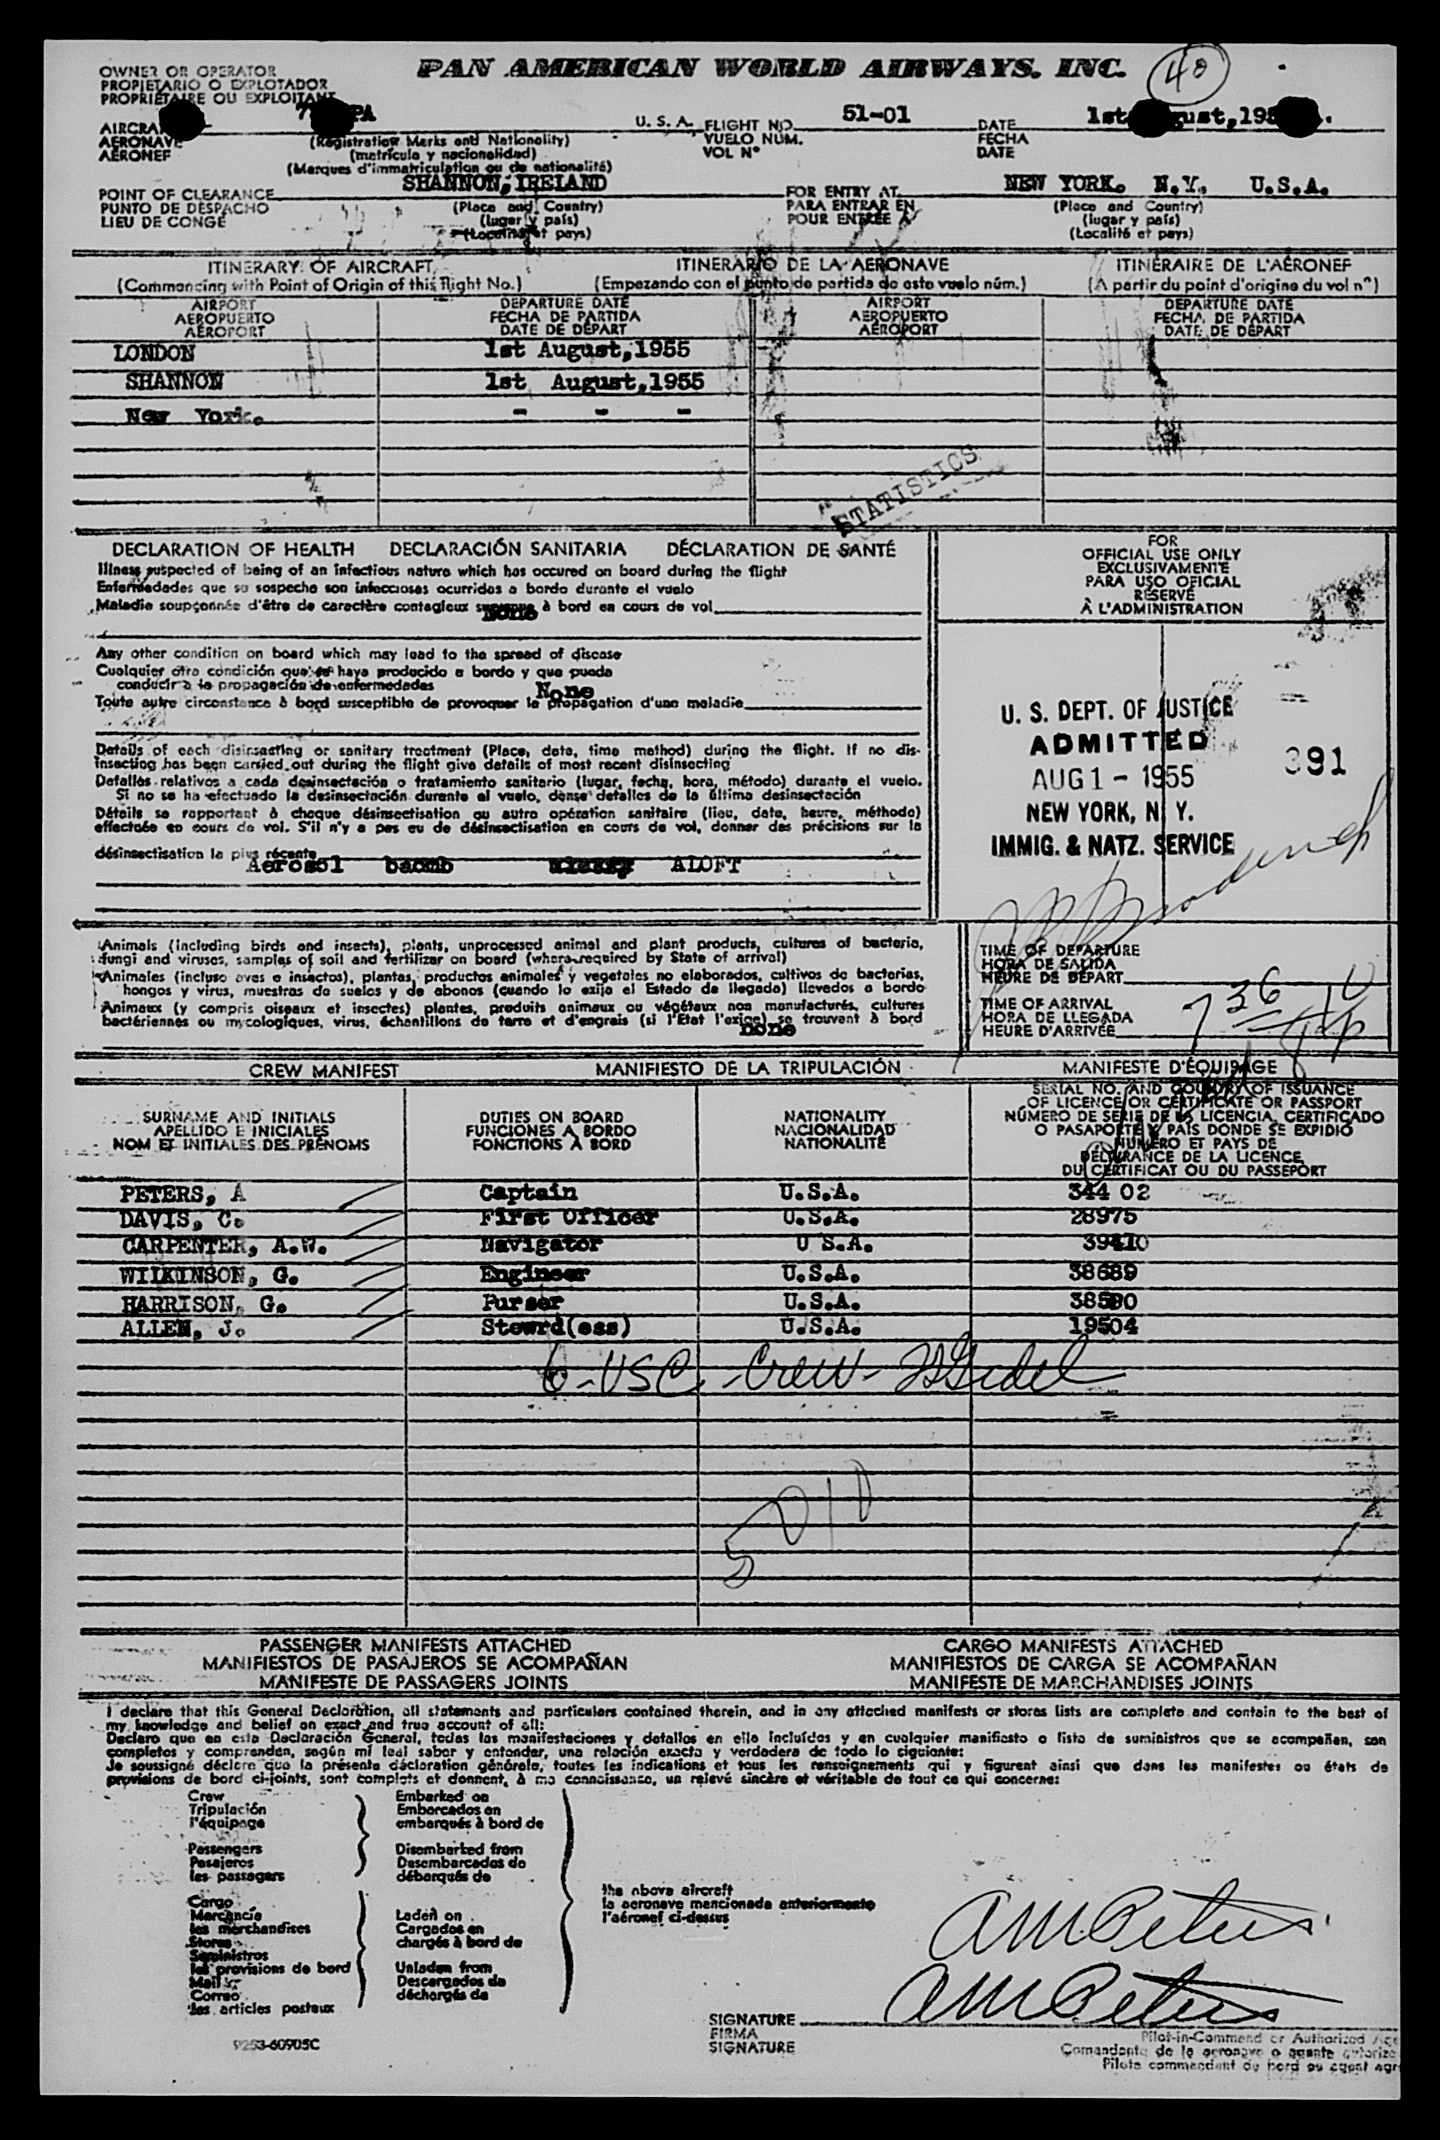 PAN AMERICAN WORLD AIRWAYS, INC.
40
OWNER OR OPERATOR
PROPIETARIO O EXPLOTADOR
PROPRIÉTAIRE OU EXPLOITANT
AERONAVE
AÉRONEF
PA
U. S. A.
(Registration Marks and Nationality)
(matrícula y nacionalidad)
(Marques d'immatriculation ou de nationalité)
FLIGHT NO.
VUELO NUM.
VOL N°
51-01
DATE
FECHA
DATE
1st
POINT OF CLEARANCE
PUNTO DE DESPACHO
LIEU DE CONGÉ
SHANNON, IRELAND
(Place and Country)
(lugar y país)
(Localité et pays)
FOR ENTRY AT
PARA ENTRAR EN
POUR ENTRÉE À
NEW YORK. N.Y. U.S.A.
(Place and Country)
(lugar y país)
(Localité et pays)
ITINERARY OF AIRCRAFT
(Commencing with Point of Origin of this flight No.)
ITINERARIO DE LA AERONAVE
(Empezando con el punto de partida de este vuelo núm.)
ITINÉRAIRE DE L'AÉRONEF
(A partir du point d'origine du vol n°)
AIRPORT
AEROPUERTO
AÉROPORT
DEPARTURE DATE
FECHA DE PARTIDA
DATE DE DÉPART
AIRPORT
AEROPUERTO
AÉROPORT
DEPARTURE DATE
FECHA DE PARTIDA
DATE DE DÉPART
LONDON 1st August,1955
SHANNON 1st August,1955
New York. - - -
STATISTICS
DECLARATION OF HEALTH DECLARACIÓN SANITARIA DÉCLARATION DE SANTÉ
Illness suspected of being of an infectious nature which has occured on board during the flight
Enfermedades que se sospecha son infecciosas ocurridas a bordo durante el vuelo
Maladie soupçonnée d'être de caractère contagieux survenue à bord en cours de vol
None
Any other condition on board which may lead to the spread of disease
Cualquier otra condición que se haya producido a bordo y que pueda
conducir a la propagación de enfermedades
None
Toute autre circonstance à bord susceptible de provoquer la propagation d'une maladie
Details of each disinsecting or sanitary treatment (Place, date, time method) during the flight. If no dis-
insecting has been carried out during the flight give details of most recent disinsecting
Detalles relativos a cada desinsectación o tratamiento sanitario (lugar, fecha, hora, método) durante el vuelo.
Si no se ha efectuado la desinsectación durante el vuelo, dense detalles de la última desinsectación
Détails se rapportant à chaque désinsectisation ou autre opération sanitaire (lieu, date, heure, méthode)
effectuée en cours de vol. S'il n'y a pas eu de désinsectisation en cours de vol, donner des précisions sur la
désinsectisation la plus récente
Aerosol baomb ALOFT
FOR
OFFICIAL USE ONLY
EXCLUSIVAMENTE
PARA USO OFICIAL
RÉSERVÉ
À L'ADMINISTRATION
U. S. DEPT. OF JUSTICE
ADMITTED
AUG 1 - 1955
391
NEW YORK, N. Y.
IMMIG. & NATZ. SERVICE
Animals (including birds and insects), plants, unprocessed animal and plant products, cultures of bacteria,
fungi and viruses, samples of soil and fertilizer on board (where required by State of arrival)
Animales (incluso aves e insectos), plantas, productos animales y vegetales no elaborados, cultivos de bacterias,
hongos y virus, muestras de suelos y de abonos (cuando lo exija el Estado de llegada) llevados a bordo
Animaux (y compris oiseaux et insectes) plantes, produits animaux ou végétaux non manufacturés, cultures
bactériennes ou mycologiques, virus, échantillons de terre et d'engrais (si l'Etat l'exige) se trouvant à bord
none
TIME OF DEPARTURE
HORA DE SALIDA
HEURE DE DÉPART
TIME OF ARRIVAL
HORA DE LLEGADA
HEURE D'ARRIVÉE
7 36
CREW MANIFEST MANIFIESTO DE LA TRIPULACIÓN MANIFESTE D'ÉQUIPAGE
SURNAME AND INITIALS
APELLIDO E INICIALES
NOM ET INITIALES DES PRÉNOMS
DUTIES ON BOARD
FUNCIONES A BORDO
FONCTIONS À BORD
NATIONALITY
NACIONALIDAD
NATIONALITÉ
SERIAL NO. AND COUNTRY OF ISSUANCE
OF LICENCE OR CERTIFICATE OR PASSPORT
NÚMERO DE SERIE DE LA LICENCIA, CERTIFICADO
O PASAPORTE Y PAÍS DONDE SE EXPIDIÓ
NUMÉRO ET PAYS DE
DÉLIVRANCE DE LA LICENCE,
DU CERTIFICAT OU DU PASSEPORT
PETERS, A Captain U.S.A. 344 02
DAVIS, C. First Officer U.S.A. 28975
CARPENTER, A.W. Navigator U S.A. 39410
WILKINSON, G. Engineer U.S.A. 38689
HARRISON, G. Purser U.S.A.
ALLEN, J. Stewrd(ess) U.S.A. 19504
6-USC-Crew-
5010
PASSENGER MANIFESTS ATTACHED
MANIFIESTOS DE PASAJEROS SE ACOMPAÑAN
MANIFESTE DE PASSAGERS JOINTS
CARGO MANIFESTS ATTACHED
MANIFIESTOS DE CARGA SE ACOMPAÑAN
MANIFESTE DE MARCHANDISES JOINTS
I declare that this General Declaration, all statements and particulars contained therein, and in any attached manifests or stores lists are complete and contain to the best of
my knowledge and belief an exact and true account of all:
Declaro que en esta Declaración General, todas las manifestaciones y detalles en ella incluídos y en cualquier manifiesto o lista de suministros que se acompañan, son
completos y comprenden, según mi leal saber y entender, una relación exacta y verdadera de todo lo siguiente:
Je soussigné déclare que la présente déclaration générale, toutes les indications et tous les renseignements qui y figurent ainsi que dans les manifestes ou états de
provisions de bord ci-joints, sont complets et donnent, à ma connaissance, un relevé sincère et véritable de tout ce qui concerne:
Crew
Tripulación
l'équipage
Embarked on
Embarcados en
embarqués à bord de
Passengers
Pasajeros
les passagers
Disembarked from
Desembarcados de
débarqués de
Cargo
Mercancía
les merchandises
Stores
Suministros
les provisions de bord
Mail
Correo
les articles postaux
Laden on
Cargados en
chargés à bord de
Unladen from
Descargados de
déchargés de
the above aircraft
la aeronave mencionada anteriormente
l'aéronef ci-dessus
AM Peters
AM Peters
SIGNATURE
FIRMA
SIGNATURE
Pilot-in-Command or Authorized
Comandante de la aeronave o agente
Pilote commandant de bord ou agent
9253-60905C